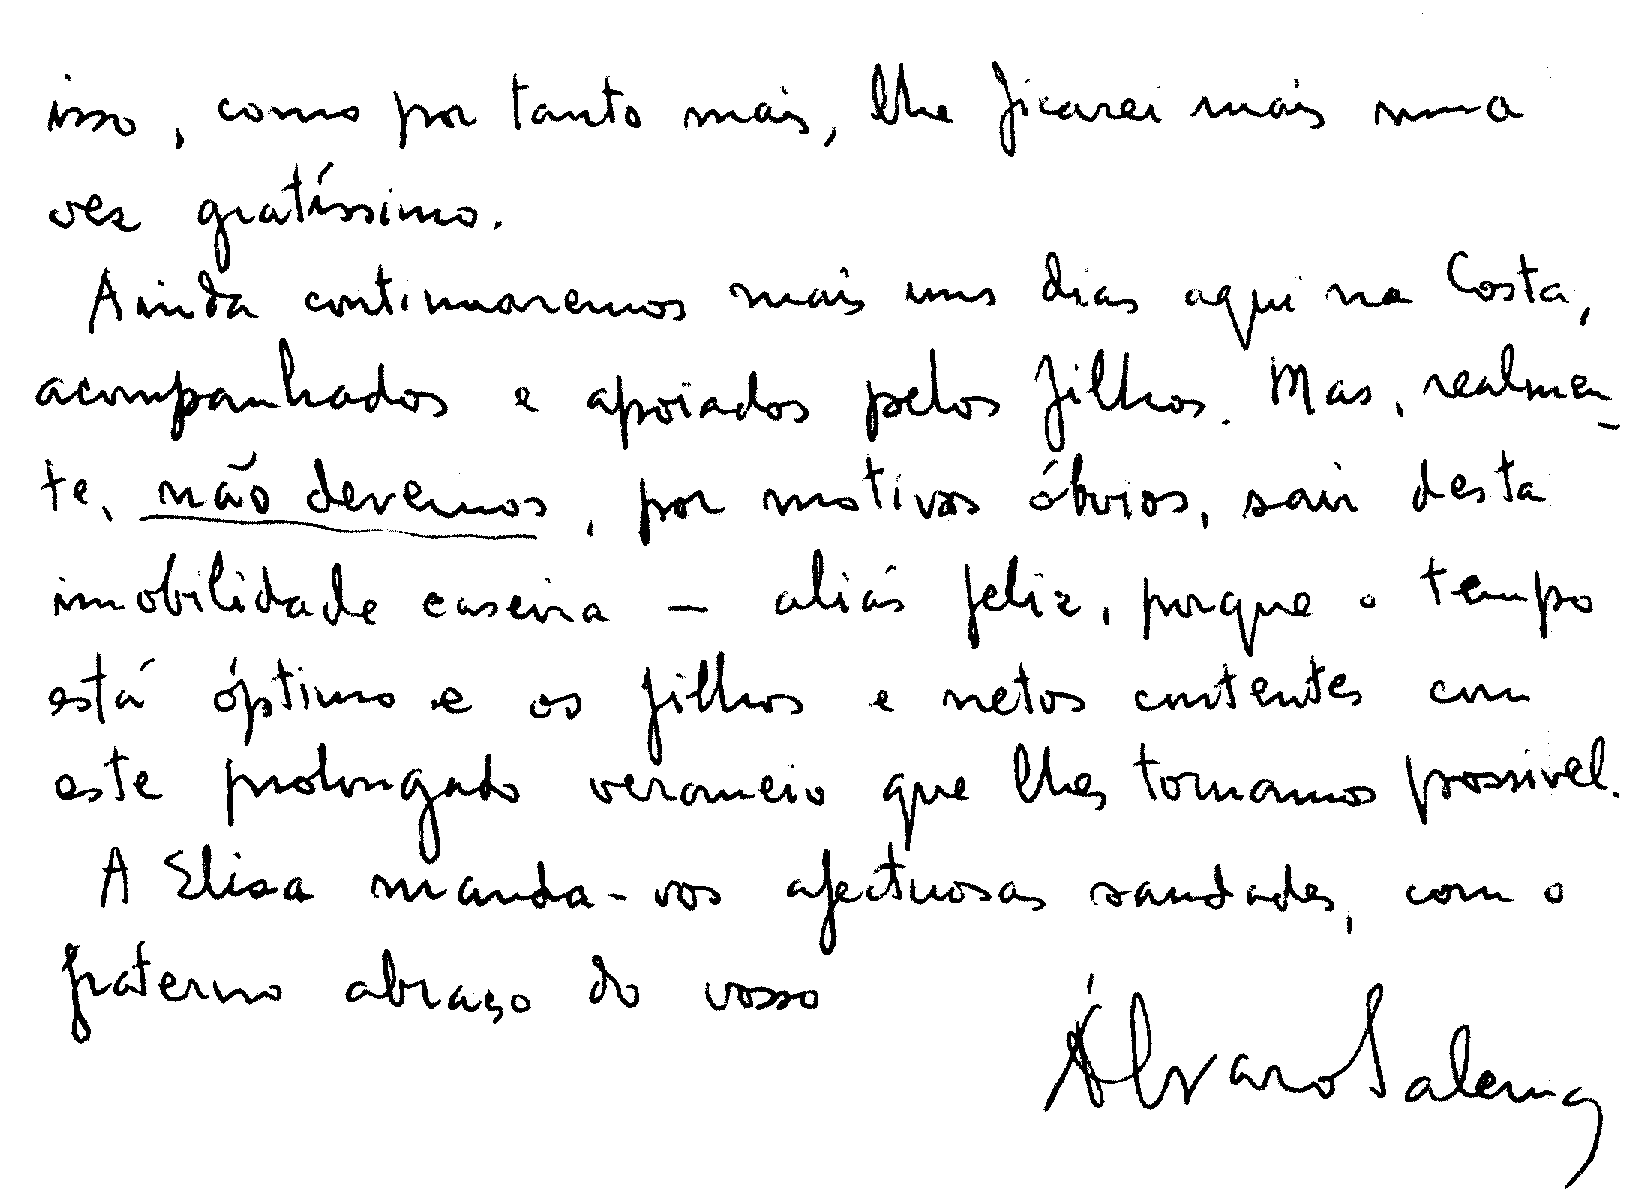 isso, como por tanto mais, lhe ficarei mais uma
vez gratíssimo.
Ainda continuaremos mais uns dias aqui na Costa,
acompanhados e apoiados pelos filhos. Mas, realmen-
te, não devemos, por motivos óbvios, sair desta
imobilidade caseira — aliás feliz, porque o tempo
está óptimo e os filhos e netos contentes com
este prolongado veraneio que lhes tornamos possivel.
A Elisa manda-vos afectuosas saudades, com o
fraterno abraço do vosso
Álvaro Salema